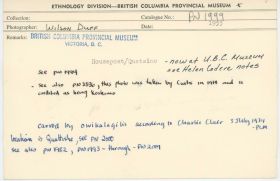 ETHNOLOGY DIVISION—BRITISH COLUMBIA PROVINCIAL MUSEUM
Collection: Catalogue No.: PN 1999
Photographer: Wilson Duff Date: 1955
Remarks: BRITISH COLUMBIA PROVINCIAL MUSEUM
VICTORIA, B. C.
Housepost/Quatsino - now at U.B.C. Museum
see Helen Codere notes
SEE PN 1994
- SEE also PN 2530, this photo was taken by Curtis in 1914 and is
entitled as being Koskimo
carved by owikalagilis according to Charlie Clair 5 July 1974
-PLM
location is Quattishe, see PN 2000
see also PN 1982, PN 1993 - through - PN 2009